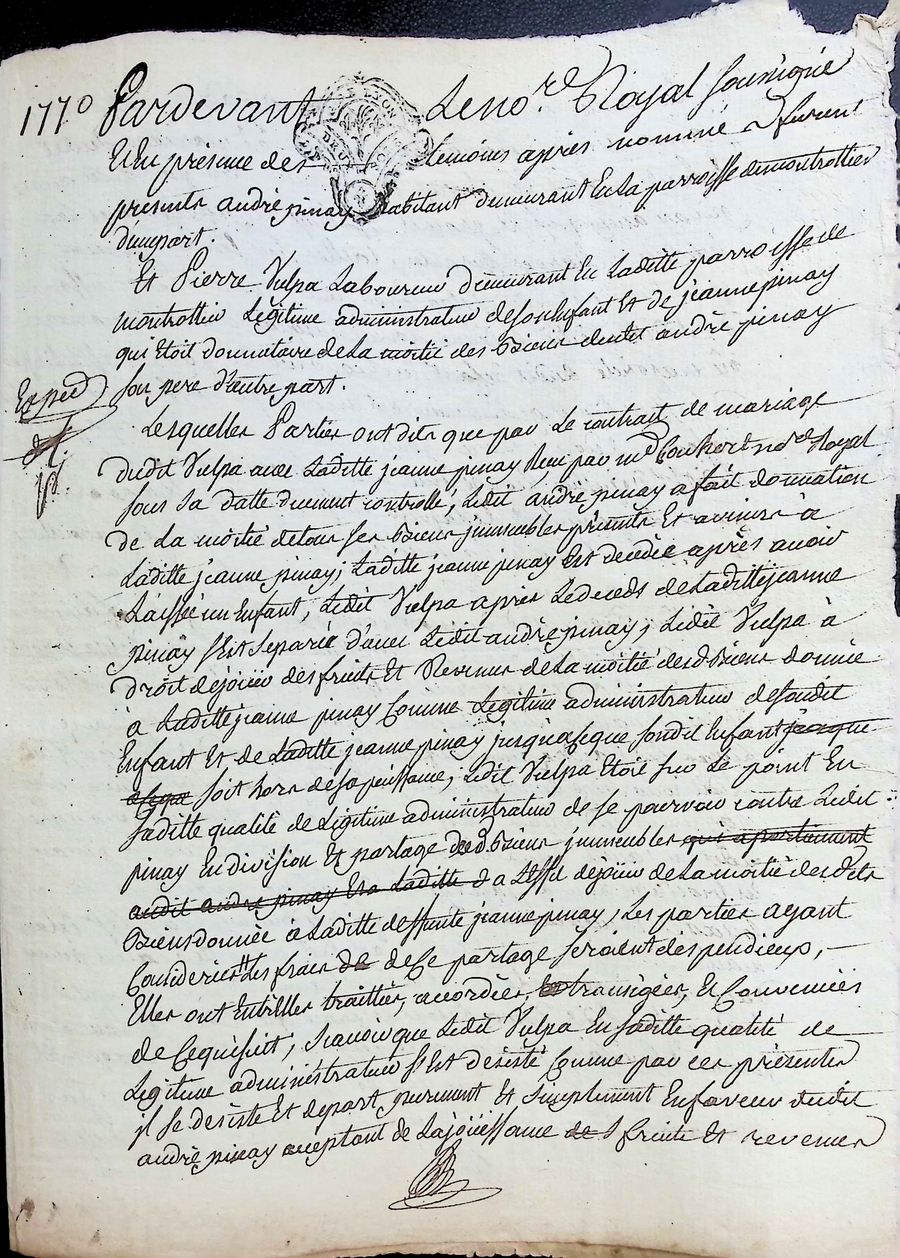 1770 Pardevant Le no.re Royal soussigné
Et En présence des témoins après nommé, furent
présents andré pinay habitant demeurant En La parroisse de montrottier
d'une part.
Et Pierre Vulpa Laboureur demeurant En Laditte parroisse de
montrottier Légitime administrateur de son Enfant Et de jeanne pinay
qui Etoit donnataire de La moitié des biens dudit andré pinay
son pere d'autre part.
Exped
Lesquelles Parties ont dit que par Le contrait de mariage
dudit Vulpa avec Laditte jeanne pinay Reçu par m.e no.re Royal
sous sa datte duement controllé, Ledit andré pinay a fait donnation
de La moitié de tous ses biens jmmeubles présents Et avenirs à
Laditte jeanne pinay; Laditte jeanne pinay Est decedée après avoir
Laissé un Enfant, Ledit Vulpa après Le deceds de Laditte jeanne
pinay s'Est separé d'avec Ledit andré pinay; Ledit Vulpa à
droit de joüir des fruits Et Revenus de La moitié desd. biens donnée
à Laditte jeanne pinay Comme Légitime administrateur de sondit
Enfant Et de Laditte jeanne pinay jusqu'a ce que sondit Enfant
soit hors de sa puissance, Ledit Vulpa Etoit sur Le point En
saditte qualité de Légitime administrateur de se pourvoir contre Ledit
pinay En division Et partage desd. biens jmmeubles qui apartiennent
audit andré pinay Et a Laditte à L'effet de joüir de La moitié des dits
biens donnée à Laditte deffunte jeanne pinay, Les parties ayant
Consideréés Les frais de de Ce partage seroient dispendieux,
Elles ont Entr'Elles traittées, accordées, Et transigées, Et Convenuës
de Ce qui suit, sçavoir que Ledit Vulpa En saditte qualité de
Légitime administrateur s'Est desisté Comme par ces présentes
jl se desiste Et depart purement Et simplement En faveur dudit
andré pinay acceptant de La joüissance de s fruits Et revenus